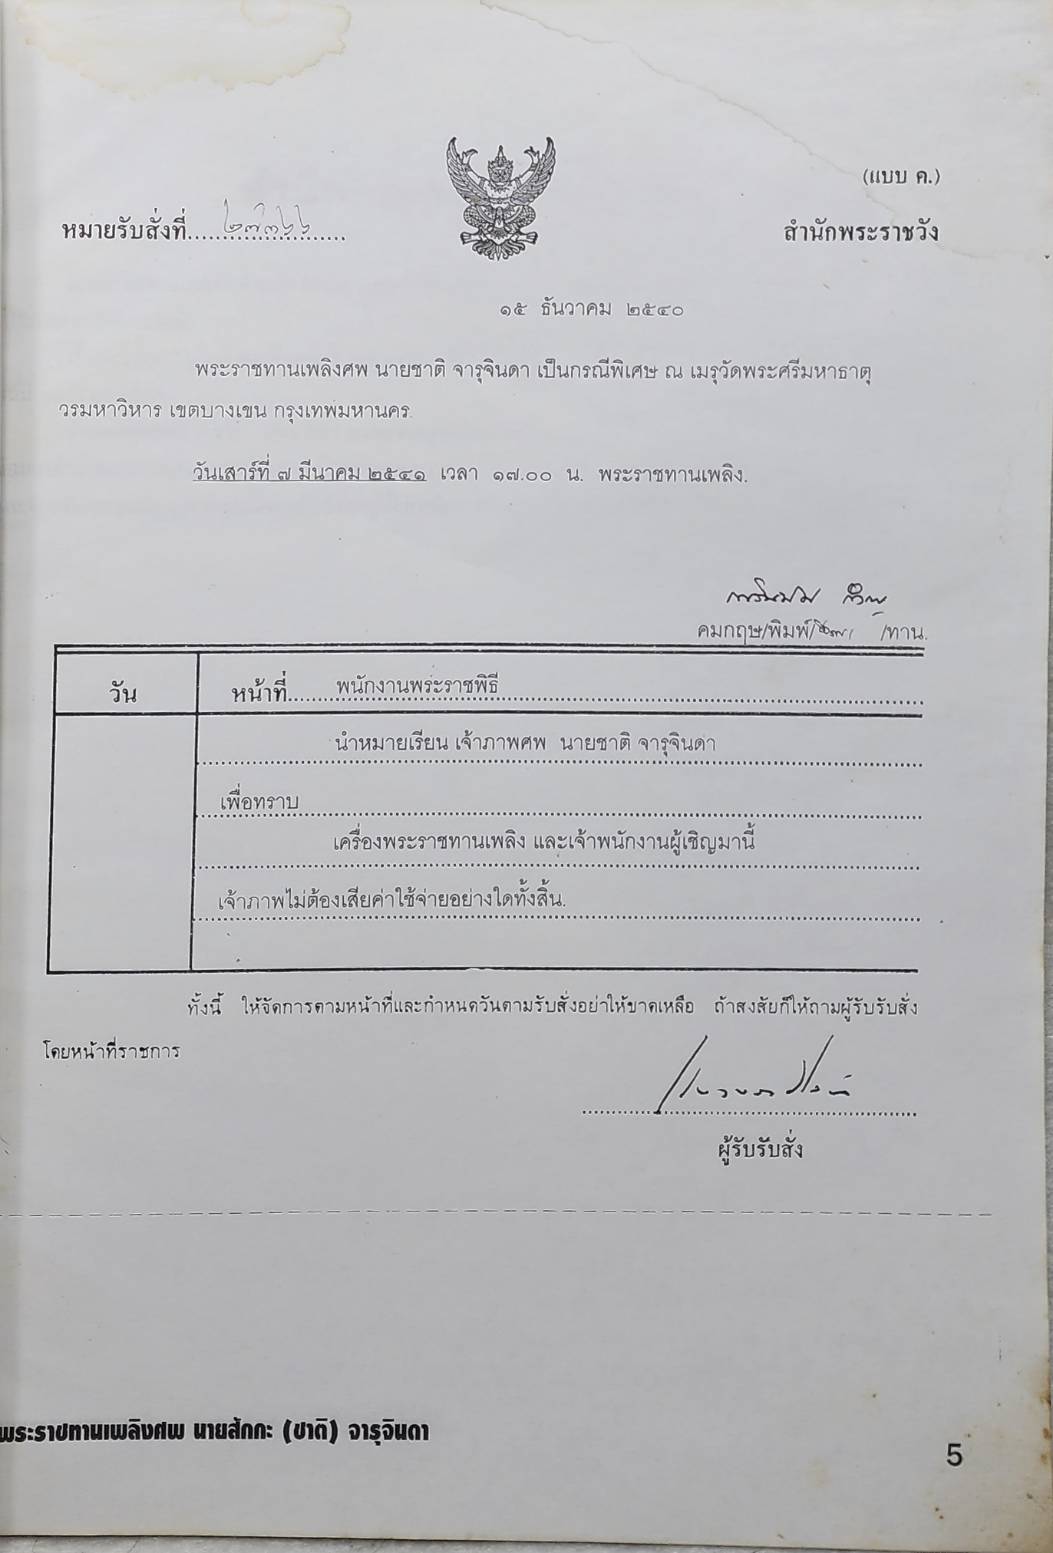 (แบบ ค.)
หมายรับสั่งที่......................
สำนักพระราชวัง
๑๕ ธันวาคม ๒๕๔๐
พระราชทานเพลิงศพ นายชาติ จารุจินดา เป็นกรณีพิเศษ ณ เมรุวัดพระศรีมหาธาตุ
วรมหาวิหาร เขตบางเขน กรุงเทพมหานคร
วันเสาร์ที่ ๗ มีนาคม ๒๕๔๑ เวลา ๑๗.๐๐ น. พระราชทานเพลิง.
คมกฤษ/พิมพ์/ /ทาน.
วัน
หน้าที่.......พนักงานพระราชพิธี
นำหมายเรียน เจ้าภาพศพ นายชาติ จารุจินดา
เพื่อทราบ
เครื่องพระราชทานเพลิง และเจ้าพนักงานผู้เชิญมานี้
เจ้าภาพไม่ต้องเสียค่าใช้จ่ายอย่างใดทั้งสิ้น.
ทั้งนี้ ให้จัดการตามหน้าที่และกำหนดวันตามรับสั่งอย่าให้ขาดเหลือ ถ้าสงสัยก็ให้ถามผู้รับรับสั่ง
โดยหน้าที่ราชการ
ผู้รับรับสั่ง
พระราชทานเพลิงศพ นายสักกะ (ชาติ) จารุจินดา
5